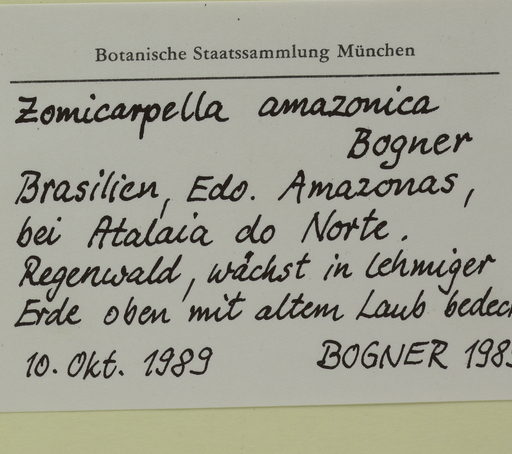 Botanische Staatssammlung München
Zomicarpella amazonica
Bogner
Brasilien, Edo. Amazonas,
bei Atalaia do Norte.
Regenwald, wächst in lehmiger
Erde oben mit altem Laub
10. Okt. 1989 BOGNER